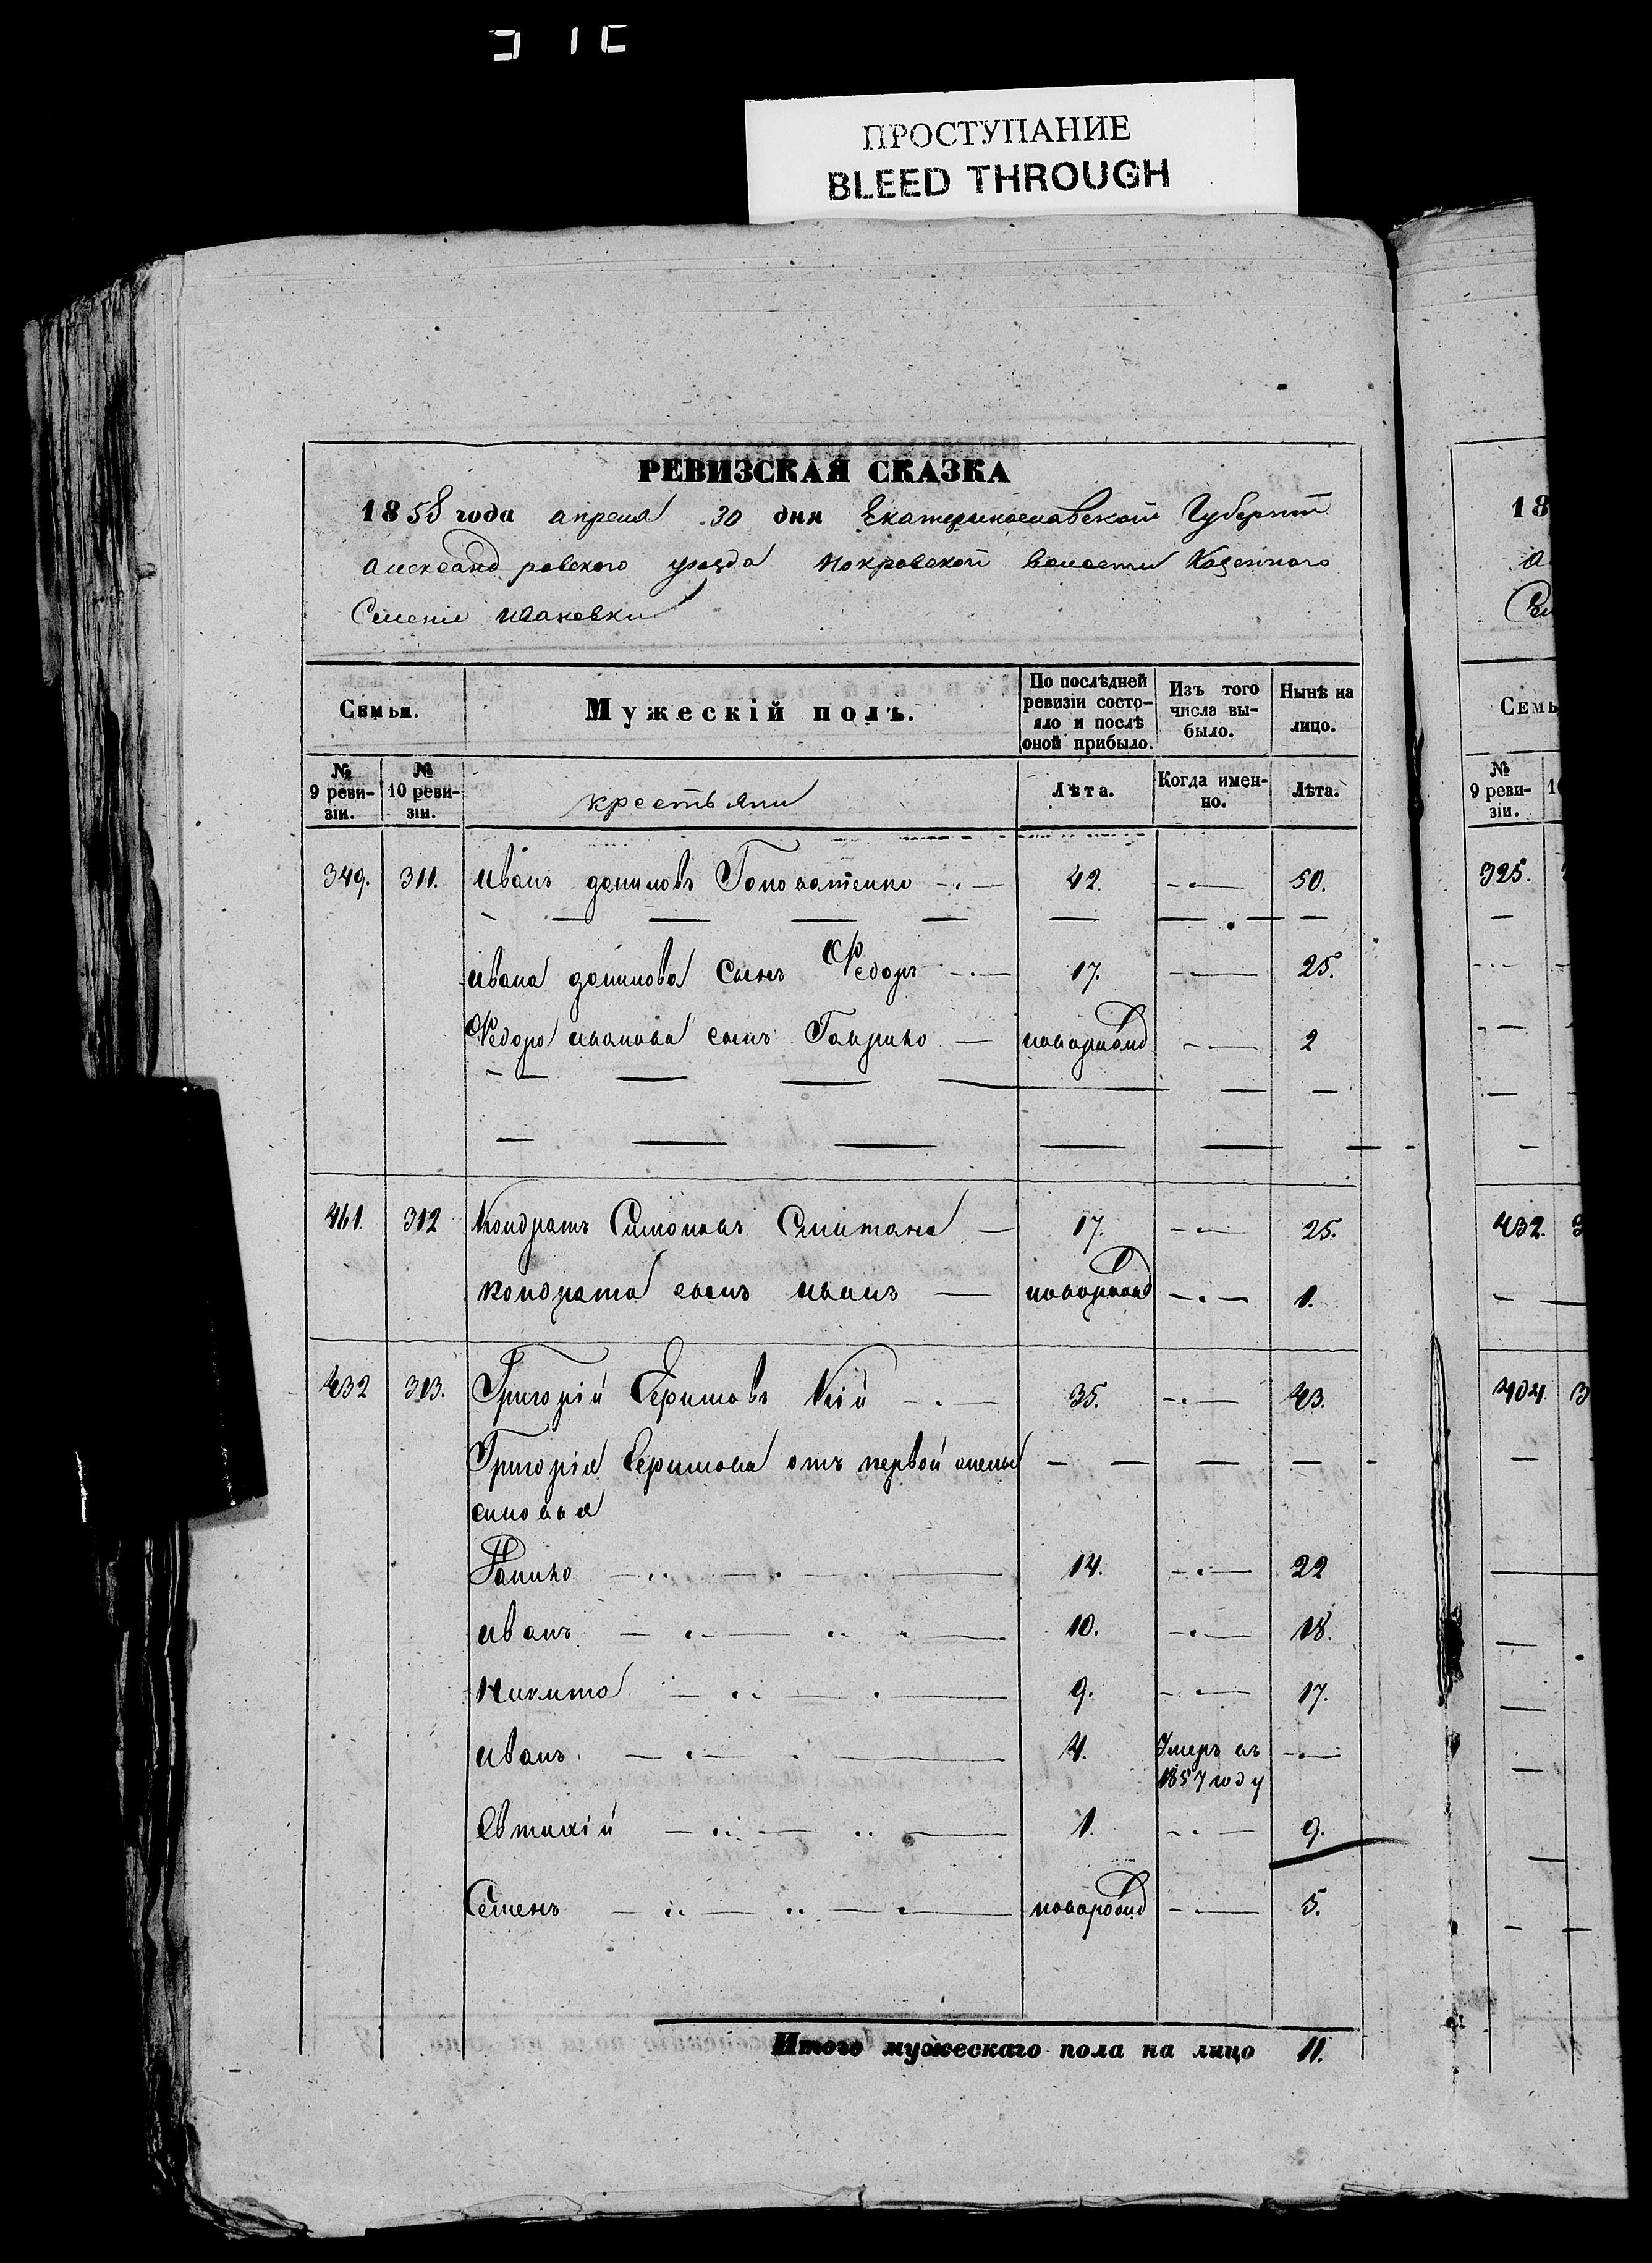 ПРОСТУПАНИЕ
BLEED THROUGH
РЕВИЗСКАЯ СКАЗКА
1858 года апреля 30 дня Екатеринославской Губерніи
Александровского уѣзда Покровской волости Казенного
Селенія Ивановки
18
а
Семьи.
Мужескій полъ.
По послѣдней ревизіи состо-
яло и послѣ оной прибыло.
Изъ того числа вы-
было.
Нынѣ на лицо.
Семь
№ 9 реви-
зіи.
№ 10 реви-
зіи.
крестьяни
Лѣта.
Когда имен-
но.
Лѣта.
№ 9 реви-
зіи.
349. 311. Иванъ Даниловъ 42. 50.
325.
Ивана Данилова сынъ Федоръ 17. 25.
Федора Иванова сынъ Гаврило новорожд 2
461. 312 Кондратъ Сметана 17. 25.
432.
Кондрата сынъ Иванъ новорожд 1.
432 313. Григорій Ефимовъ Кій 35. 43.
404.
Григорія Ефимова отъ первой жены
сыновья
Данило 14. 22
Иванъ 10. 18.
Никита 9. 17.
Иванъ 4. Умеръ въ
1857 году
Евтихій 1. 9.
Семенъ новорожд 5.
Итого мужескаго пола на лицо 11.